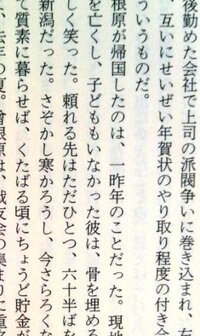 後勤めた会社で上司の派閥争いに巻き込まれ、左
、互いにせいぜい年賀状のやり取り程度の付き合
ういうものだ。
根原が帰国したのは、一昨年のことだった。現地
を亡くし、子どももいなかった彼は、骨を埋める
しく笑った。頼れる先はただひとつ、六十半ばを
新潟だった。さぞかし寒かろうし、今さらろくな
て質素に暮らせば、くたばる頃にちょうど貯金が
、去年の夏。曾根原は、戦友会の集まりに